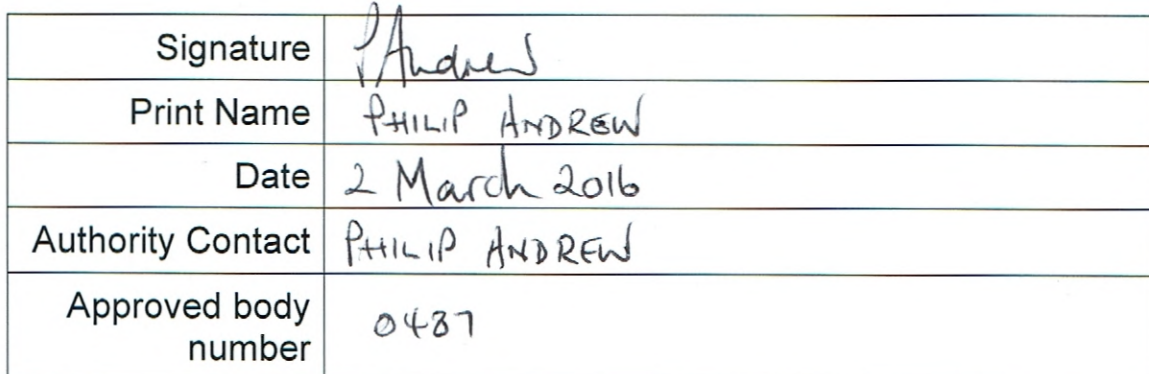 Signature PAndrew
Print Name PHILIP ANDREW
Date 2 March 2016
Authority Contact PHILIP ANDREW
Approved body
number 0487